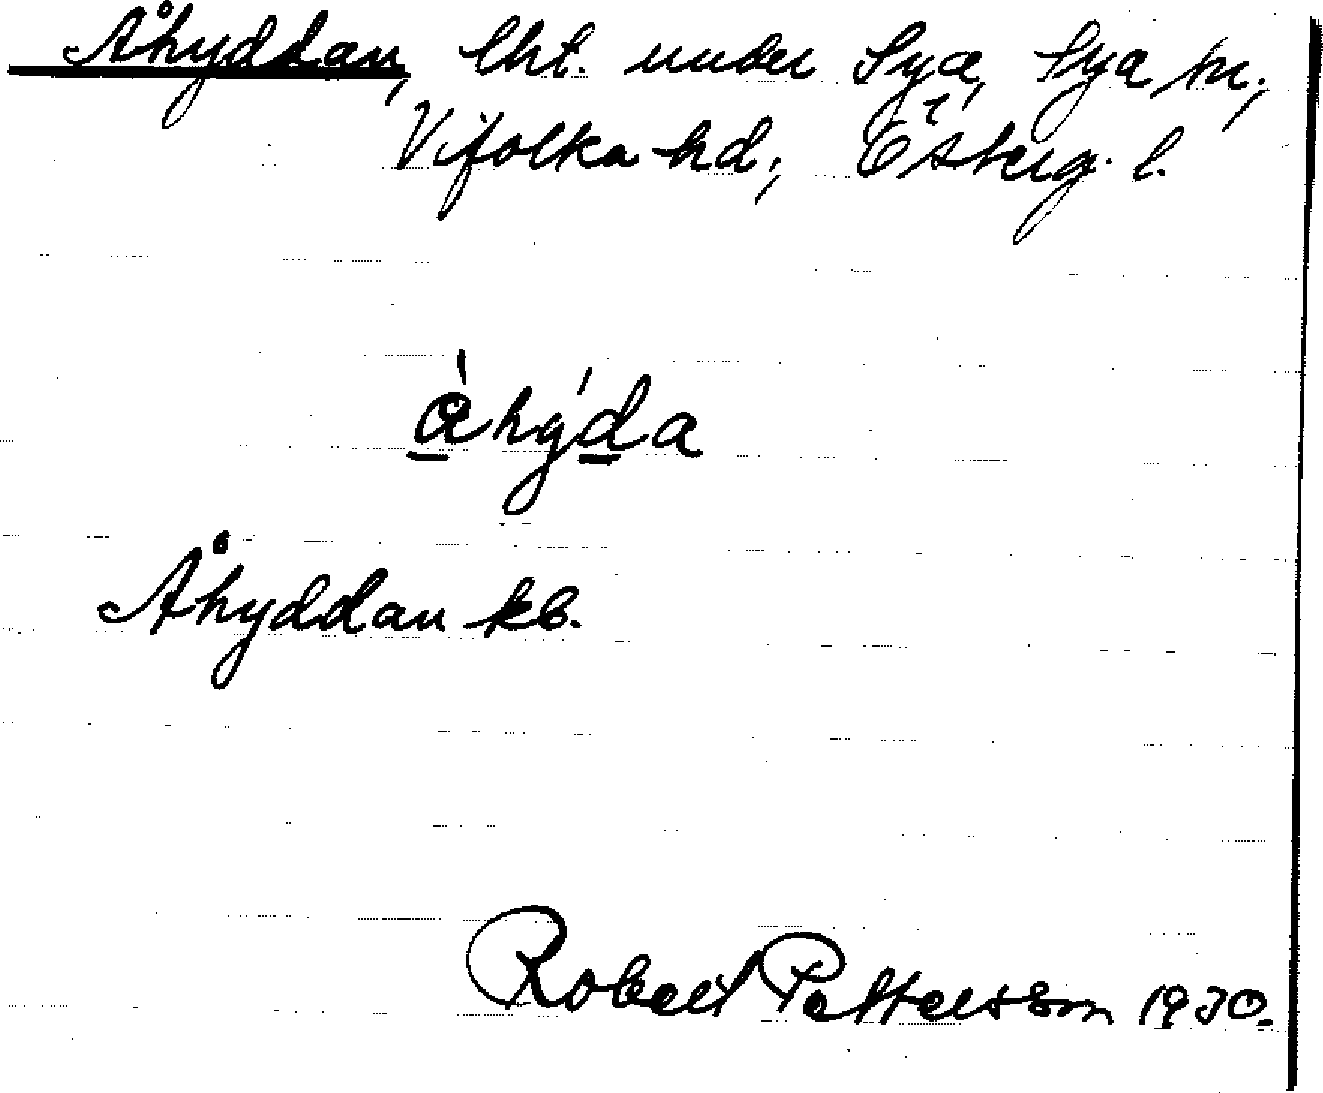 Åhyddan, lht. under Sya, Sya sn.,
Vifolka hd, Österg. l.
àhýda
Åhyddan kb.
Robert Pettersson 1930.